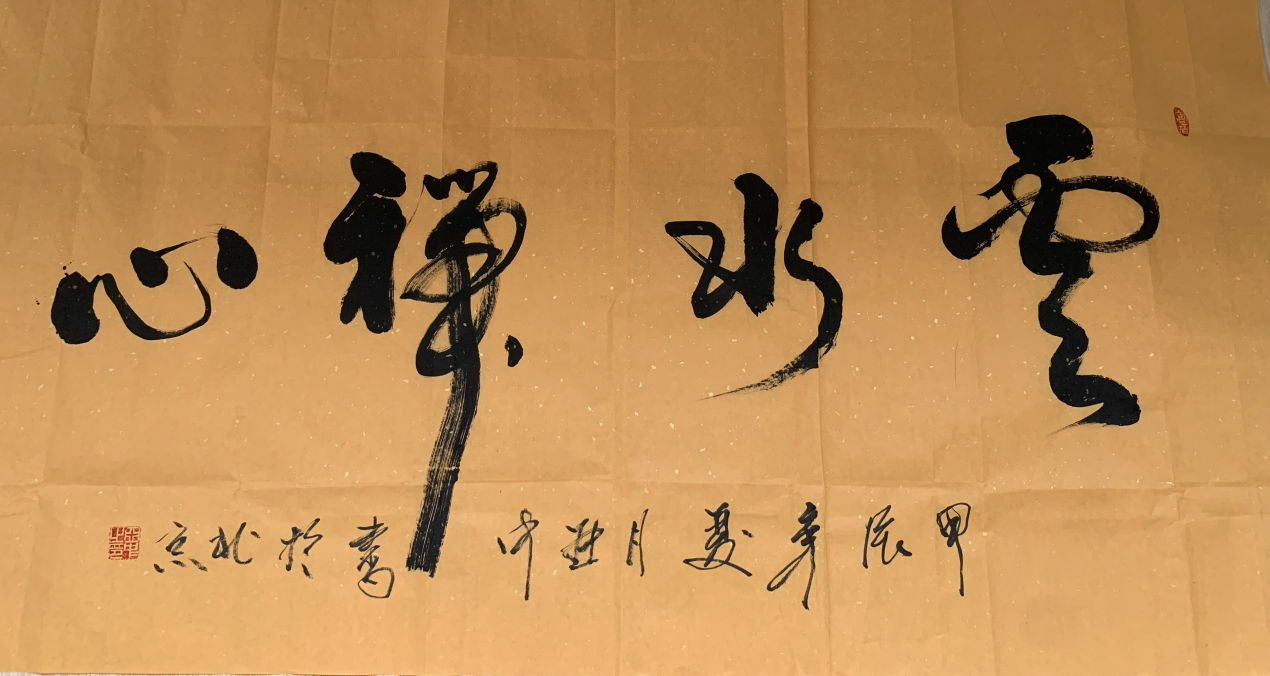 雲水禪心
甲辰年夏月 中書於北京